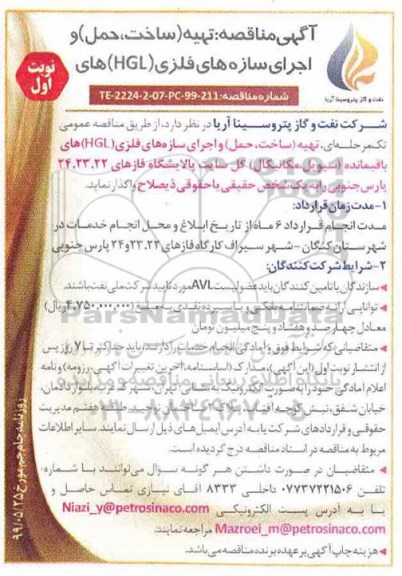 آگهی مناقصه: تهیه (ساخت، حمل) و
اجرای سازه های فلزی (HGL) های
نوبت
اول
نفت و گاز پتروسینا آریا
شماره مناقصه: TE-2224-2-07-PC-99-211
شرکت نفت و گاز پتروسینا آریا در نظر دارد، از طریق مناقصه عمومی
تک مرحله‌ای، تهیه (ساخت، حمل) و اجرای سازه های فلزی (HGL) های
باقیمانده (سیویل، مکانیکال) کل سایت پالایشگاه فازهای ۲۴،۲۳،۲۲
پارس جنوبی را به یک شخص حقیقی یا حقوقی ذیصلاح واگذار نماید.
۱- مدت زمان قرارداد:
مدت انجام قرارداد ۶ ماه از تاریخ ابلاغ و محل انجام خدمات در
شهرستان کنگان - شهر سیراف کارگاه فازهای ۲۳،۲۲ و ۲۴ پارس جنوبی
۲- شرایط شرکت کنندگان:
سازندگان یا تامین کنندگان باید عضو لیست AVL مورد تایید شرکت ملی نفت باشند.
توانایی ارائه ضمانتنامه بانکی یا سپرده نقدی به مبلغ (۴,۷۵۰,۰۰۰,۰۰۰ ریال)
معادل چهارصد و هفتاد و پنج میلیون تومان
متقاضیانی که شرایط فوق و آمادگی انجام خدمات را دارند، باید حداکثر تا ۷ روز پس
از انتشار نوبت اول (این آگهی)، مدارک (اساسنامه، آخرین تغییرات آگهی، رزومه) و نامه
اعلام آمادگی خود را به صورت الکترونیک
خیابان شفق، نبش مدیریت
حقوقی و قراردادهای شرکت یا به آدرس ایمیل های ذیل ارسال نمایند. سایر اطلاعات
مربوط به مناقصه در اسناد مناقصه درج گردیده است.
متقاضیان در صورت داشتن هر گونه سوال می‌توانند با شماره
تلفن ۰۷۷۳۷۲۲۱۵۰۶ داخلی ۸۳۳۳ آقای نیازی تماس حاصل و
یا به آدرس پست الکترونیکی Niazi_y@petrosinaco.com
Mazroei_m@petrosinaco.com مراجعه نمایند.
هزینه چاپ آگهی بر عهده برنده مناقصه می‌باشد.
روزنامه جام جم مورخ ۹۹/۰۵/۲۵
ParsNamadData
پایگاه اطلاع رسانی مناقصه و مزایده
۰۲۱-۸۸۳۴۹۶۷۰-۵